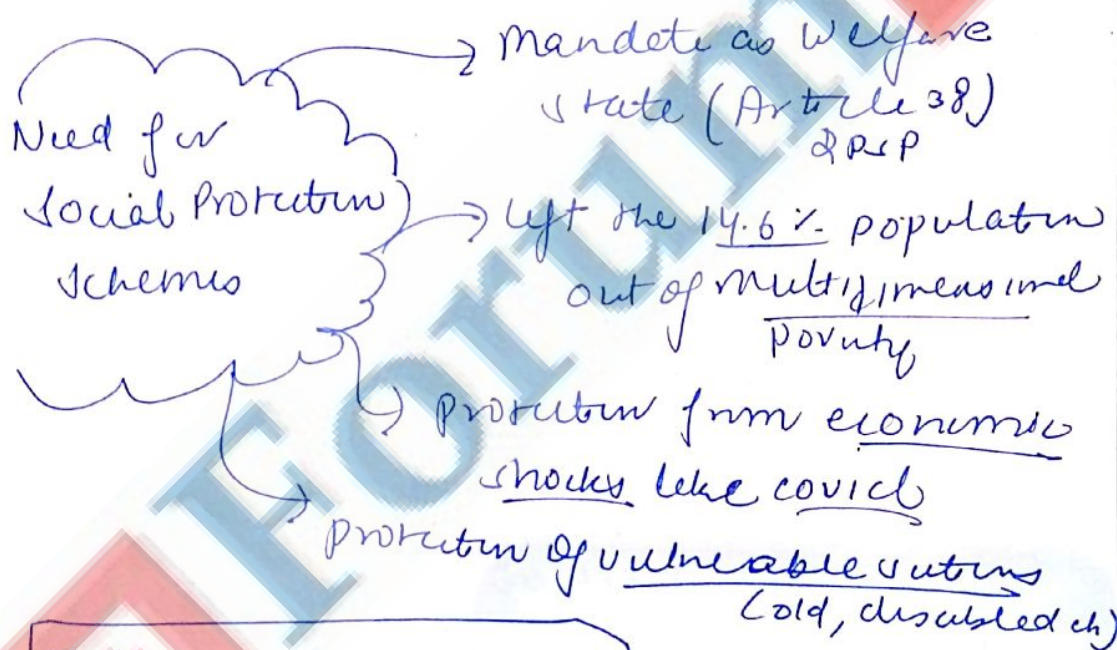 Need for
Social Protection
Schemes
Mandate as Welfare
state (Article 38)
DPSP
lift the 14.6 % population
out of multidimensional
poverty
protection from economic
shocks like covid
protection of vulnerable sections
(old, disabled etc)
Forum